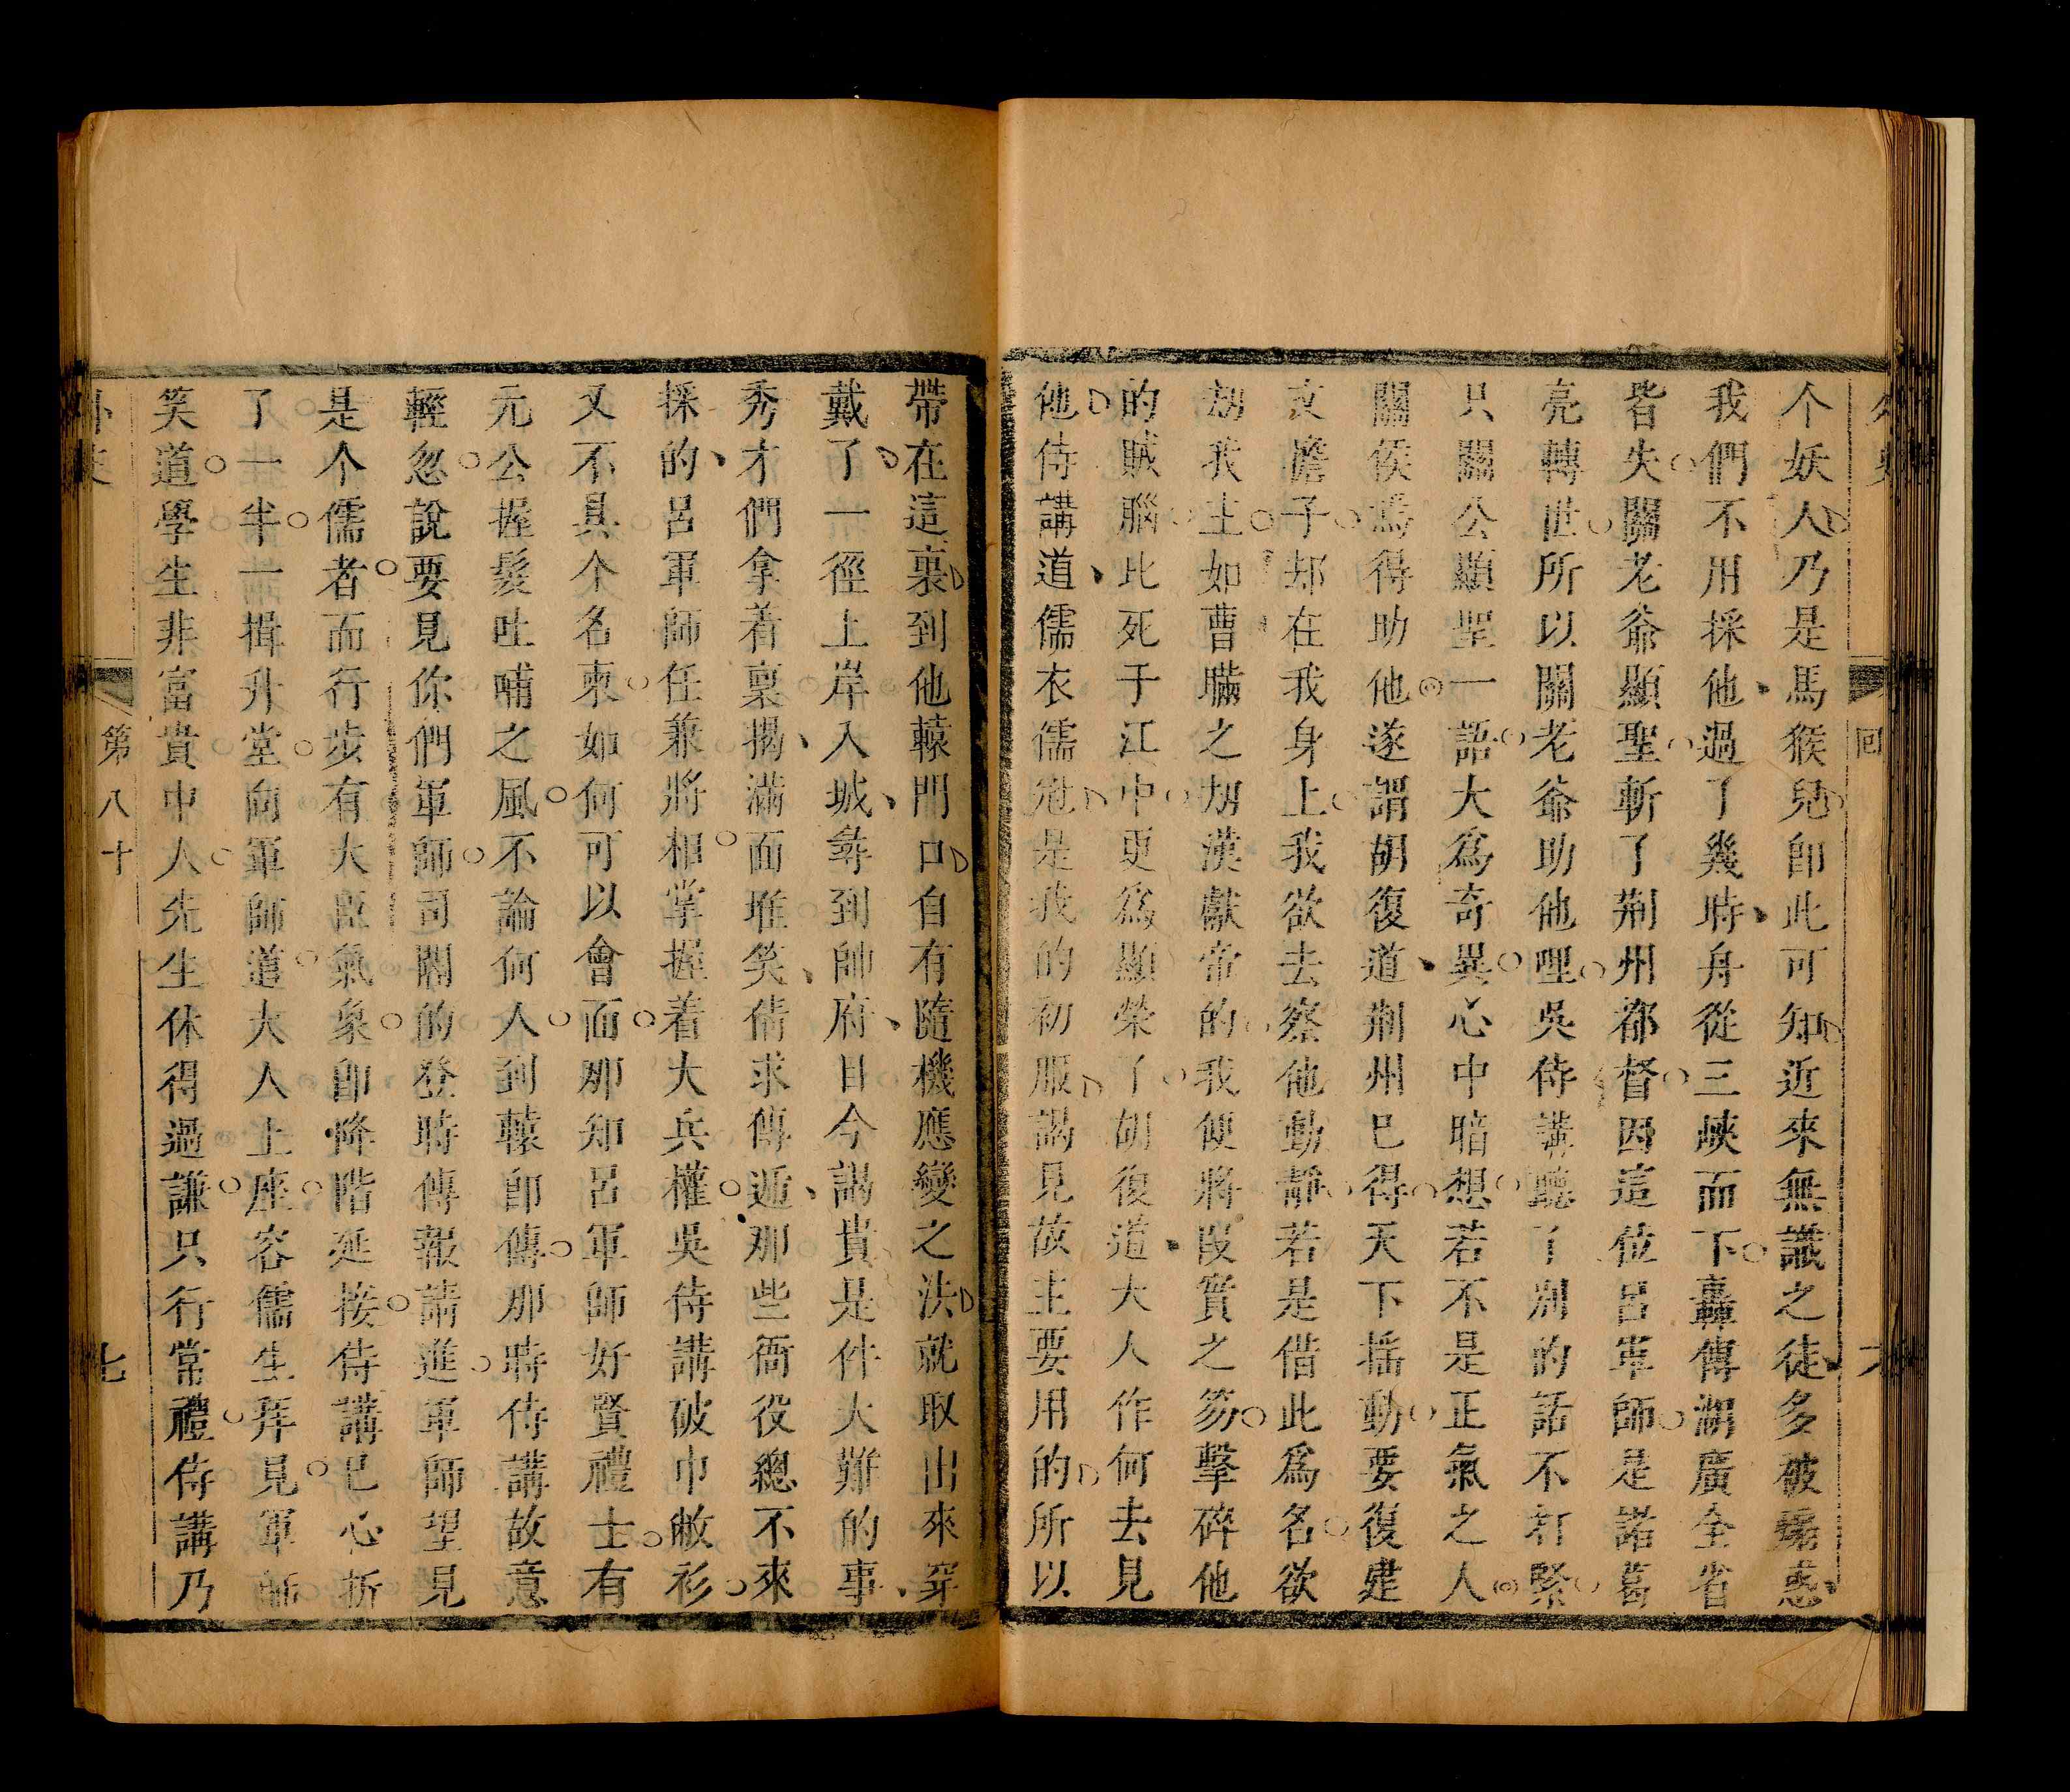 个妖人乃是馬猴兒卽此可知近來無識之徒多被煽惑
我們不用採他過了幾時舟從三峽而下轟傳湖廣全省
皆失關老爺顯聖斬了荆州都督因這位呂軍師是諾葛
亮轉世所以關老爺助他哩吳侍講聽了別的話不打緊
只關公顯聖一語大爲奇異心中暗想若不是正氣之人
關侯焉得助他遂謂胡復道荆州已得天下搖動要復建
文膽子却在我身上我欲去察他動靜若是借此爲名欲
刼我主如曹瞞之刼漢獻帝的我便將叚實之笏擊碎他
的賊腦此死于江中更爲顯榮了胡復道大人作何去見
他侍講道儒衣儒冠是我的初服謁見故主要用的所以
帶在這裏到他轅門口自有隨機應變之法就取出來穿
戴了一徑上岸入城尋到帥府目今謁貴是件大難的事
秀才們拿着稟揭滿面堆笑倩求傳遞那些衙役總不來
採的呂軍師任兼將相掌握着大兵權吳侍講破巾敝衫
又不具个名柬如何可以會面那知呂軍師好賢禮士有
元公握髮吐哺之風不論何人到轅卽傳那時侍講故意
輕忽說要見你們軍師司閽的登時傳報請進軍師望見
是个儒者而行步有大臣氣象卽降階延接侍講已心折
了一半一揖升堂向軍師道大人上座容儒生拜見軍師
笑道學生非富貴中人先生休得過謙只行常禮侍講乃
外史
第八十
七
外史
回
六